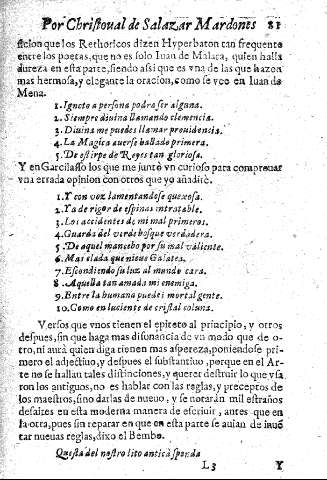 Por Christoual de Salazar Mardones 81
sicion que los Rethoricos dizen Hyperbaton tan frequente
entre los poetas, que no es solo Iuan de Malara, quien halla
dureza en esta parte, siendo assi que es vna de las que hazon
mas hermosa, y elegante la oracion, como se veo en Iuan de
Mena.
1. Ignoto a persona podra ser alguna.
2. Siempre diuina llamando clemencia.
3. Diuina me puedes llamar prouidencia.
4. La Magica auerse hallado primera.
5. De estirpe de Reyes tan gloriosa.
Y en Garcilasso los que me juntò vn curioso para comprouar
vna errada opinion con otros que yo añadirè.
1. Y con voz lamentandose quexosa.
2. Ya de rigor de espinas intratable.
3. Los accidentes de mi mal primeros.
4. Guarda del verde bosque verdadera.
5. De aquel mancebo por su mal valiente.
6. Mas elada que nieue Galatea.
7. Escondiendo su luz al mundo cara.
8. Aquella tan amada mi enemiga.
9. Entre la humana puede i mortal gente.
10. Como en luciente de cristal coluna.
Versos que vnos tienen el epiteto al principio, y otros
despues, sin que haga mas disonancia de vn modo que de o-
tro, ni aurà quien diga tienen mas aspereza, poniendose pri-
mero el adjectiuo, y despues el substantiuo, porque en el Ar
te no se hallan tales distinciones, y querer destruir lo que vsa
ron los antiguos, no es hablar con las reglas, y preceptos de
los maestros, sino darlas de nueuo, y se notaràn mil estraños
desaires en esta moderna manera de escriuir, antes que en
la otra, pues sin reparar en que en esta parte se auian de inuē
tar nueuas reglas, dixo el Bembo.
Questa del nostro lito antica sponda
L 3 Y